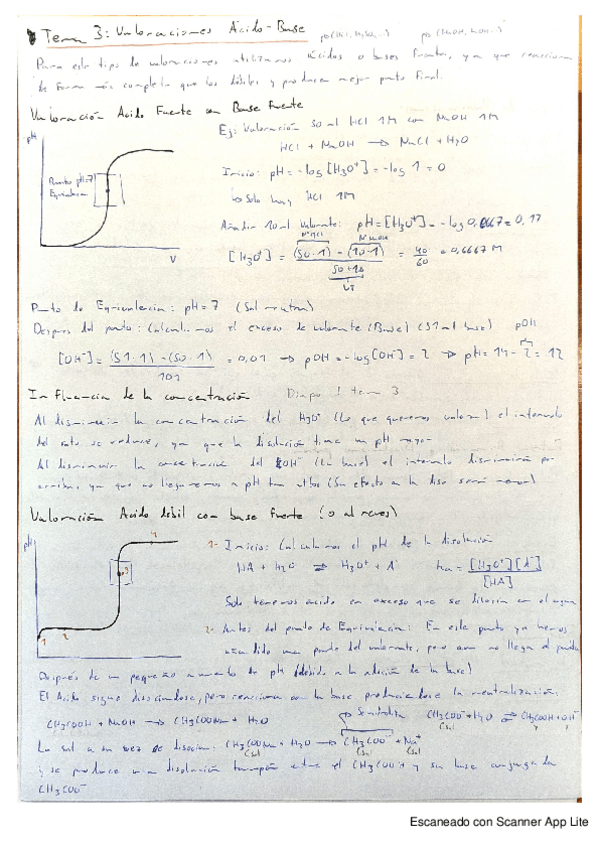 Tema 3: Valoraciones Ácido-Base
Para este tipo de valoraciones utilizamos ácidos o bases fuertes, ya que reaccionan
de forma más completa que los débiles y producen mejor punto final.
Valoración Ácido Fuerte con Base Fuerte
pH
Ej: Valoración 50 ml HCl 1M con NaOH 1M
HCl + NaOH → NaCl + H2O
Inicio: pH = -log[H3O+] = -log 1 = 0
↳ Solo hay HCl 1M
Punto pH=7
Equivalencia
V
Añadir 10 ml valorante: pH = [H3O+] = -log 0,6667 = 0,17
[H3O+] = (50·1) - (10·1) / 50+10 = 40/60 = 0,6667 M
Punto de Equivalencia: pH = 7 (Sal neutra)
Después del punto: Calculamos el exceso de valorante (Base) (51 ml base) pOH
[OH-] = (51·1) - (50·1) / 101 = 0,01 → pOH = -log[OH-] = 2 → pH = 14 - 2 = 12
Influencia de la concentración Diapo 1 tema 3
Al disminuir la concentración del H3O+ (Lo que queremos valorar) el intervalo
del salto se reduce, ya que la disolución tiene un pH mayor
Al disminuir la concentración del OH- (La base) el intervalo disminuirá por
arriba, ya que no llegaremos a pH tan altos (Su efecto a la diso será menor)
Valoración Ácido débil con base fuerte (o al revés)
pH
1 2 3 4
1- Inicio: Calculamos el pH de la disolución
HA + H2O ⇌ H3O+ + A- Ka = [H3O+][A-] / [HA]
Solo tenemos ácido en exceso que se disocia en el agua
2- Antes del punto de Equivalencia: En este punto ya hemos
añadido una parte del valorante, pero aún no llega al punto
Después de un pequeño aumento de pH (debido a la adición de la base)
El Ácido sigue disociándose, pero reacciona con la base produciéndose la neutralización:
CH3COOH + NaOH → CH3COONa + H2O CH3COO- + H2O ⇌ CH3COOH + OH-
(Sal)
La sal a su vez se disocia: CH3COONa + H2O → CH3COO- + Na+
(Sal) (Sal) (Sal)
y se produce una disolución tampón entre el CH3COO y su base conjugada
CH3COO-
Escaneado con Scanner App Lite